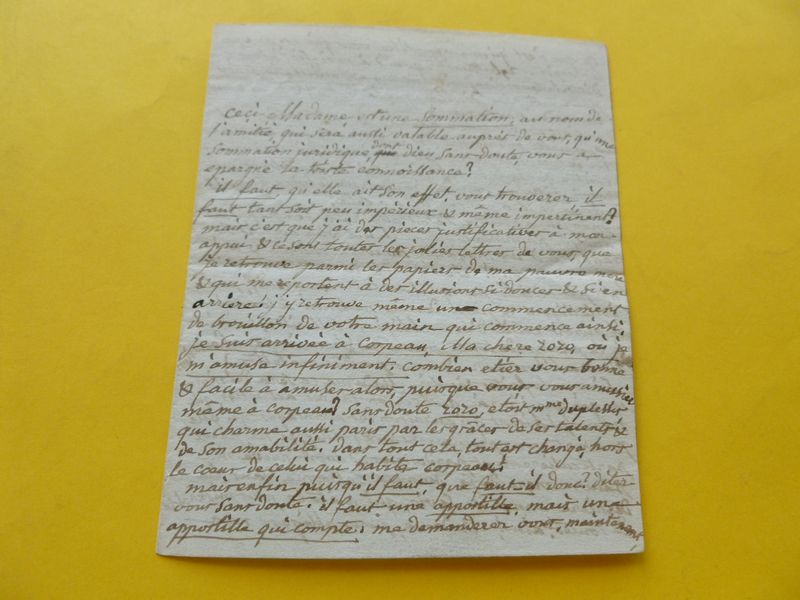 ceci Madame est une sommation, au nom de
l'amitié, qui sera aussi valable auprès de vous, qu'une
sommation juridique dont dieu sans doute, vous a
epargné la triste connoissance?
il faut qu'elle ait son effet, vous trouverez il
faut tant soit peu impérieux & même impertinent?
mais c'est que j'ai des pieces justificatives à mon
appui & ce sont toutes les jolies lettres de vous, que
je retrouve parmi les papiers de ma pauvre mere
& qui me reportent à des illusions si douces & si en
arriere! j'y retrouve même un commencement
de brouillon de votre main qui commence ainsi
je suis arrivée à corpeau, Ma chere zozo, où je
m'amuse infiniment. combien etiez vous bonne
& facile à amuser alors, puisque vous vous amusiez
même à corpeau? sans doute zozo, etoit mme duplessis
qui charme aussi paris par les grâces de ses talents &
de son amabilité. dans tout cela, tout est changé, hors
le coeur de celui qui habite corpeau!
mais enfin puisqu'il faut, que faut-il donc? direz
vous sans doute. il faut une appostille, mais une
appostille qui compte. me demanderez vous, maintenant